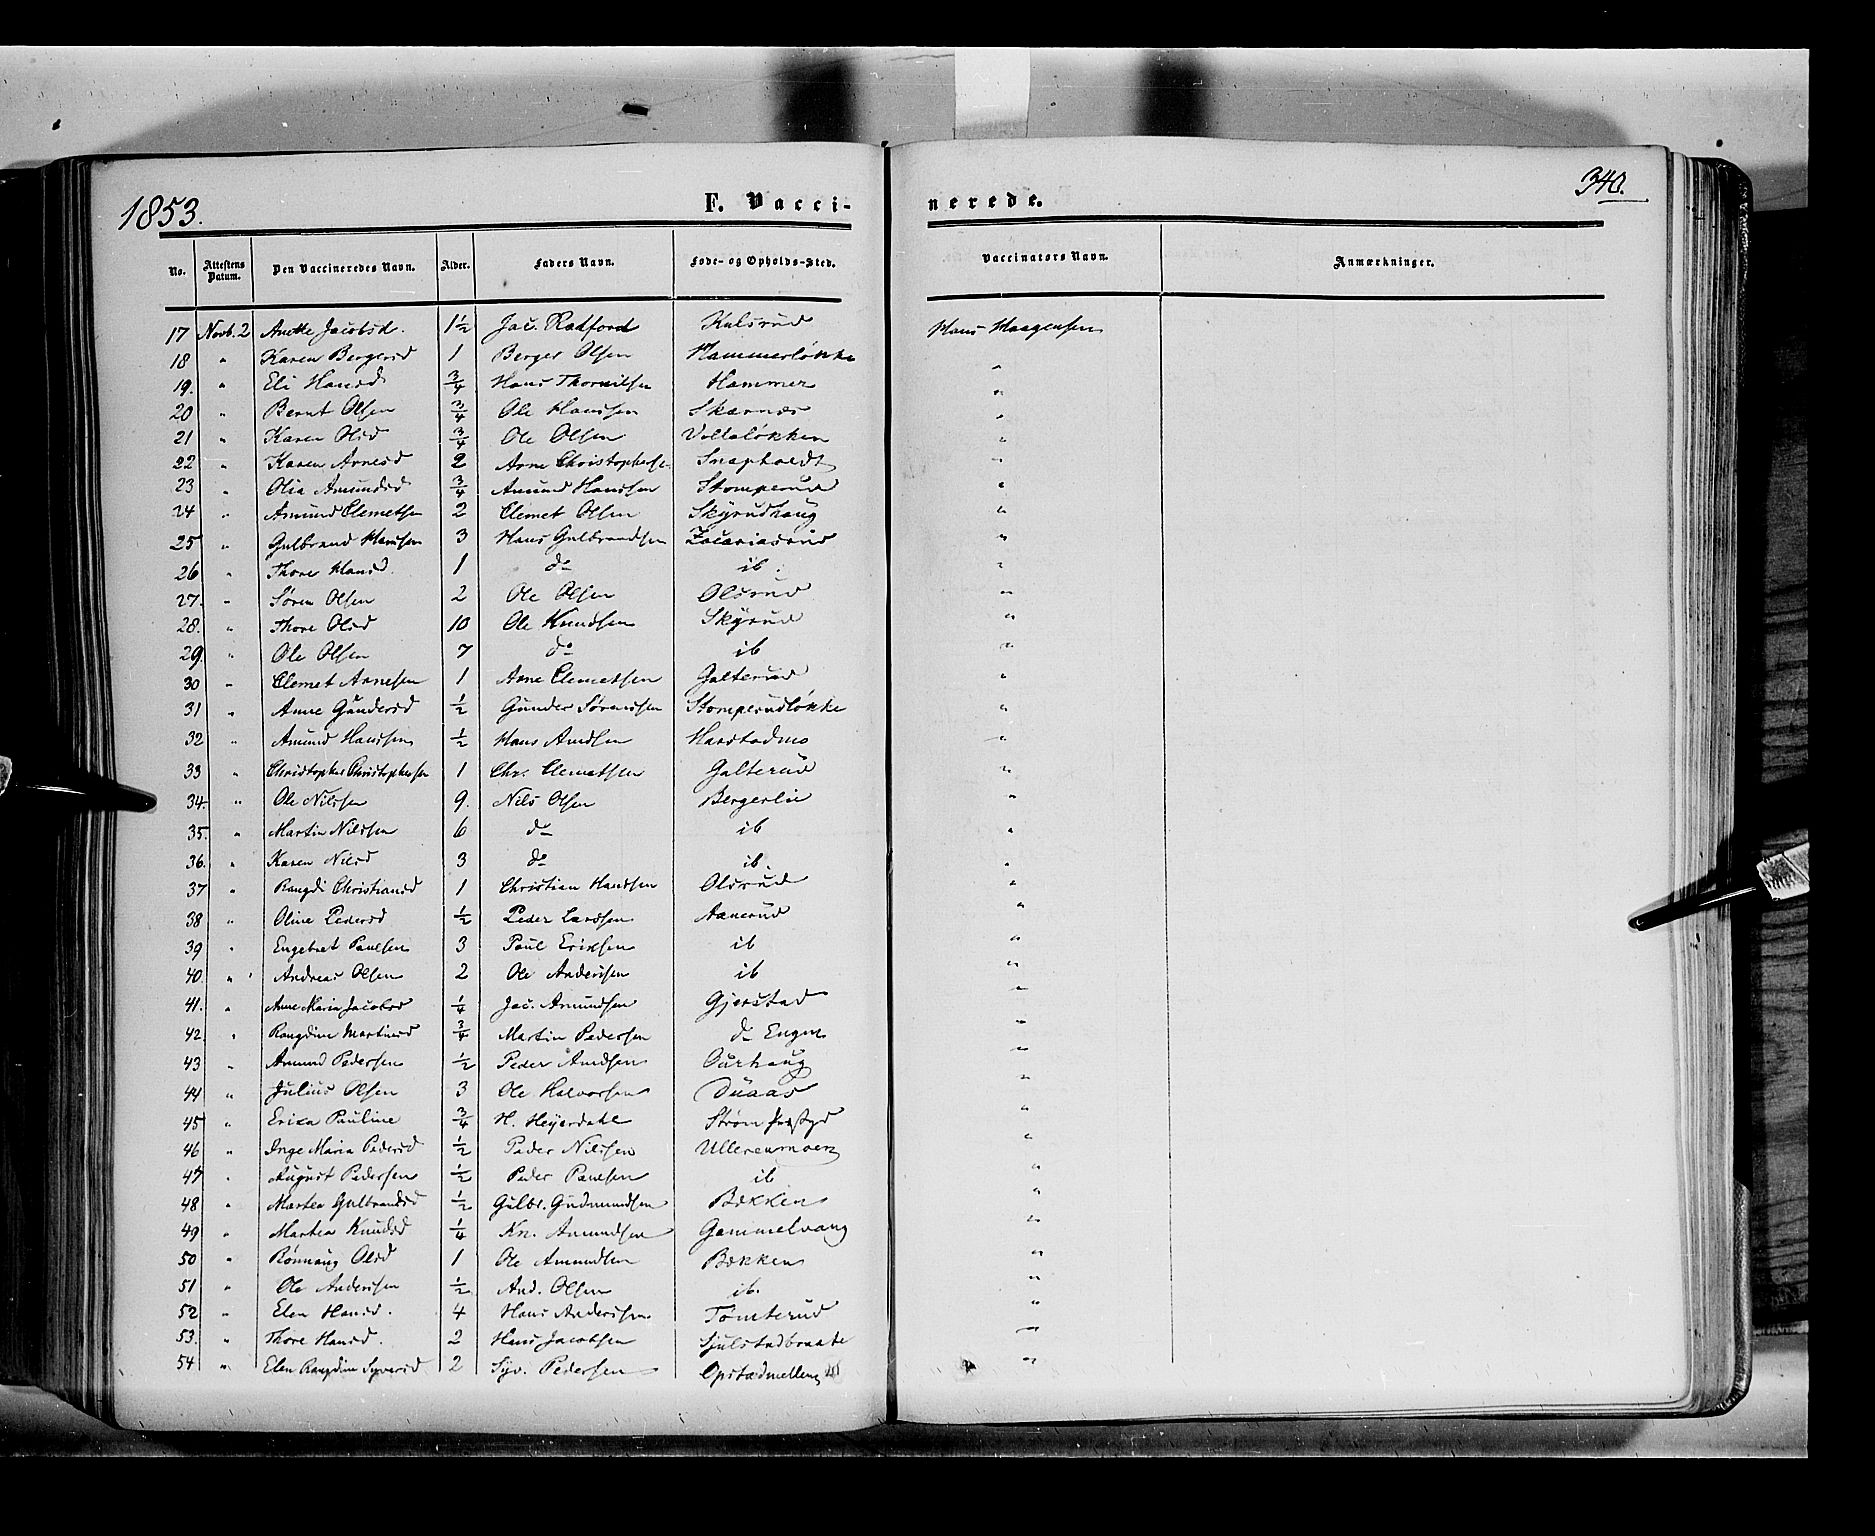 1853. F. Vaccinerede. 340.
No. Attestens Datum. Den Vaccineredes Navn. Alder. Faders Navn. Føde- og Opholds-Sted. Vaccinators Navn. Anmærkninger.
17 Novb. 2 Anette Jacobsd. 1½ Jac. Radford Kulsrud Hans Haagensen
18 " Karen Bergersd 1 Berger Olsen Hammerløkke "
19. " Eli Hansd ¾ Hans Thorvilsen Hammer "
20 " Bernt Olsen ¾ Ole Hanssen Skarnæs "
21 " Karen Olsd ¾ Ole Olsen Voltaløkken "
22 " Karen Arnesd 2 Arne Christophersen Snapholdt "
23 " Olia Amundsd ¾ Amund Hanssen Stomperud "
24 " Amund Clemetsen 2 Clemet Olsen Skyrudhaug "
25 " Gulbrand Hanssen 3 Hans Gulbrandsen Zacariasrud "
26 " Thore Hansd. 1 do ib. "
27. " Søren Olsen 2 Ole Olsen Olsrud "
28. " Thore Olsd 10 Ole Knudsen Skyrud "
29. " Ole Olsen 7 do ib "
30 " Clemet Arnesen 1 Arne Clemetsen Galterud "
31 " Anne Gundersd ½ Gunder Sørensen Stomperudløkke "
32 " Amund Hanssen ½ Hans Amdsen Harstadmo "
33 " Christopher Christophersen 1 Chr. Clemetsen Galterud "
34. " Ole Nilssen 9. Nils Olsen Bergerlie "
35. " Martin Nilssen 6 do ib "
36. " Karen Nilsd 3 do ib. "
37 " Rangdi Christiansd 1 Christian Hanssen Olsrud "
38 " Oline Pedersd ½ Peder Larssen Aanerud "
39 " Engebret Paulsen 3 Paul Eriksen ib "
40. " Andreas Olsen 2 Ole Anderssen ib "
41. " Anne Maria Jacobsd ¼ Jac. Amundsen Gjerstad "
42. " Rangdine Martinsd ¾ Martin Pedersen do Engen "
43 " Amund Pedersen ½ Peder Amdsen Ourhaug "
44 " Julius Olsen 3 Ole Halvorsen Duaas "
45 " Erica Pauline ¾ H. Heyerdahl Strøm Præstgd "
46 " Inge Maria Pedersd ½ Peder Nilssen Ullerenmoen "
47 " August Pedersen ½ Peder Paulsen ib "
48 " Martea Gulbrandsd ½ Gulbr. Gudmundsen Bækken "
49 " Martea Knudsd ¼ Kn. Amundsen Gammelvang "
50 " Rønnaug Olsd 1 Ole Amundsen Bækken "
51 " Ole Anderssen ½ And. Olsen ib. "
52 " Elen Hansd. 4 Hans Anderssen Tomterud "
53. " Thore Hansd. 2 Hans Jacobsen Sjulstadbraate "
54 " Elen Rangdine Syversd 2 Syv. Pedersen Opstadmellem "